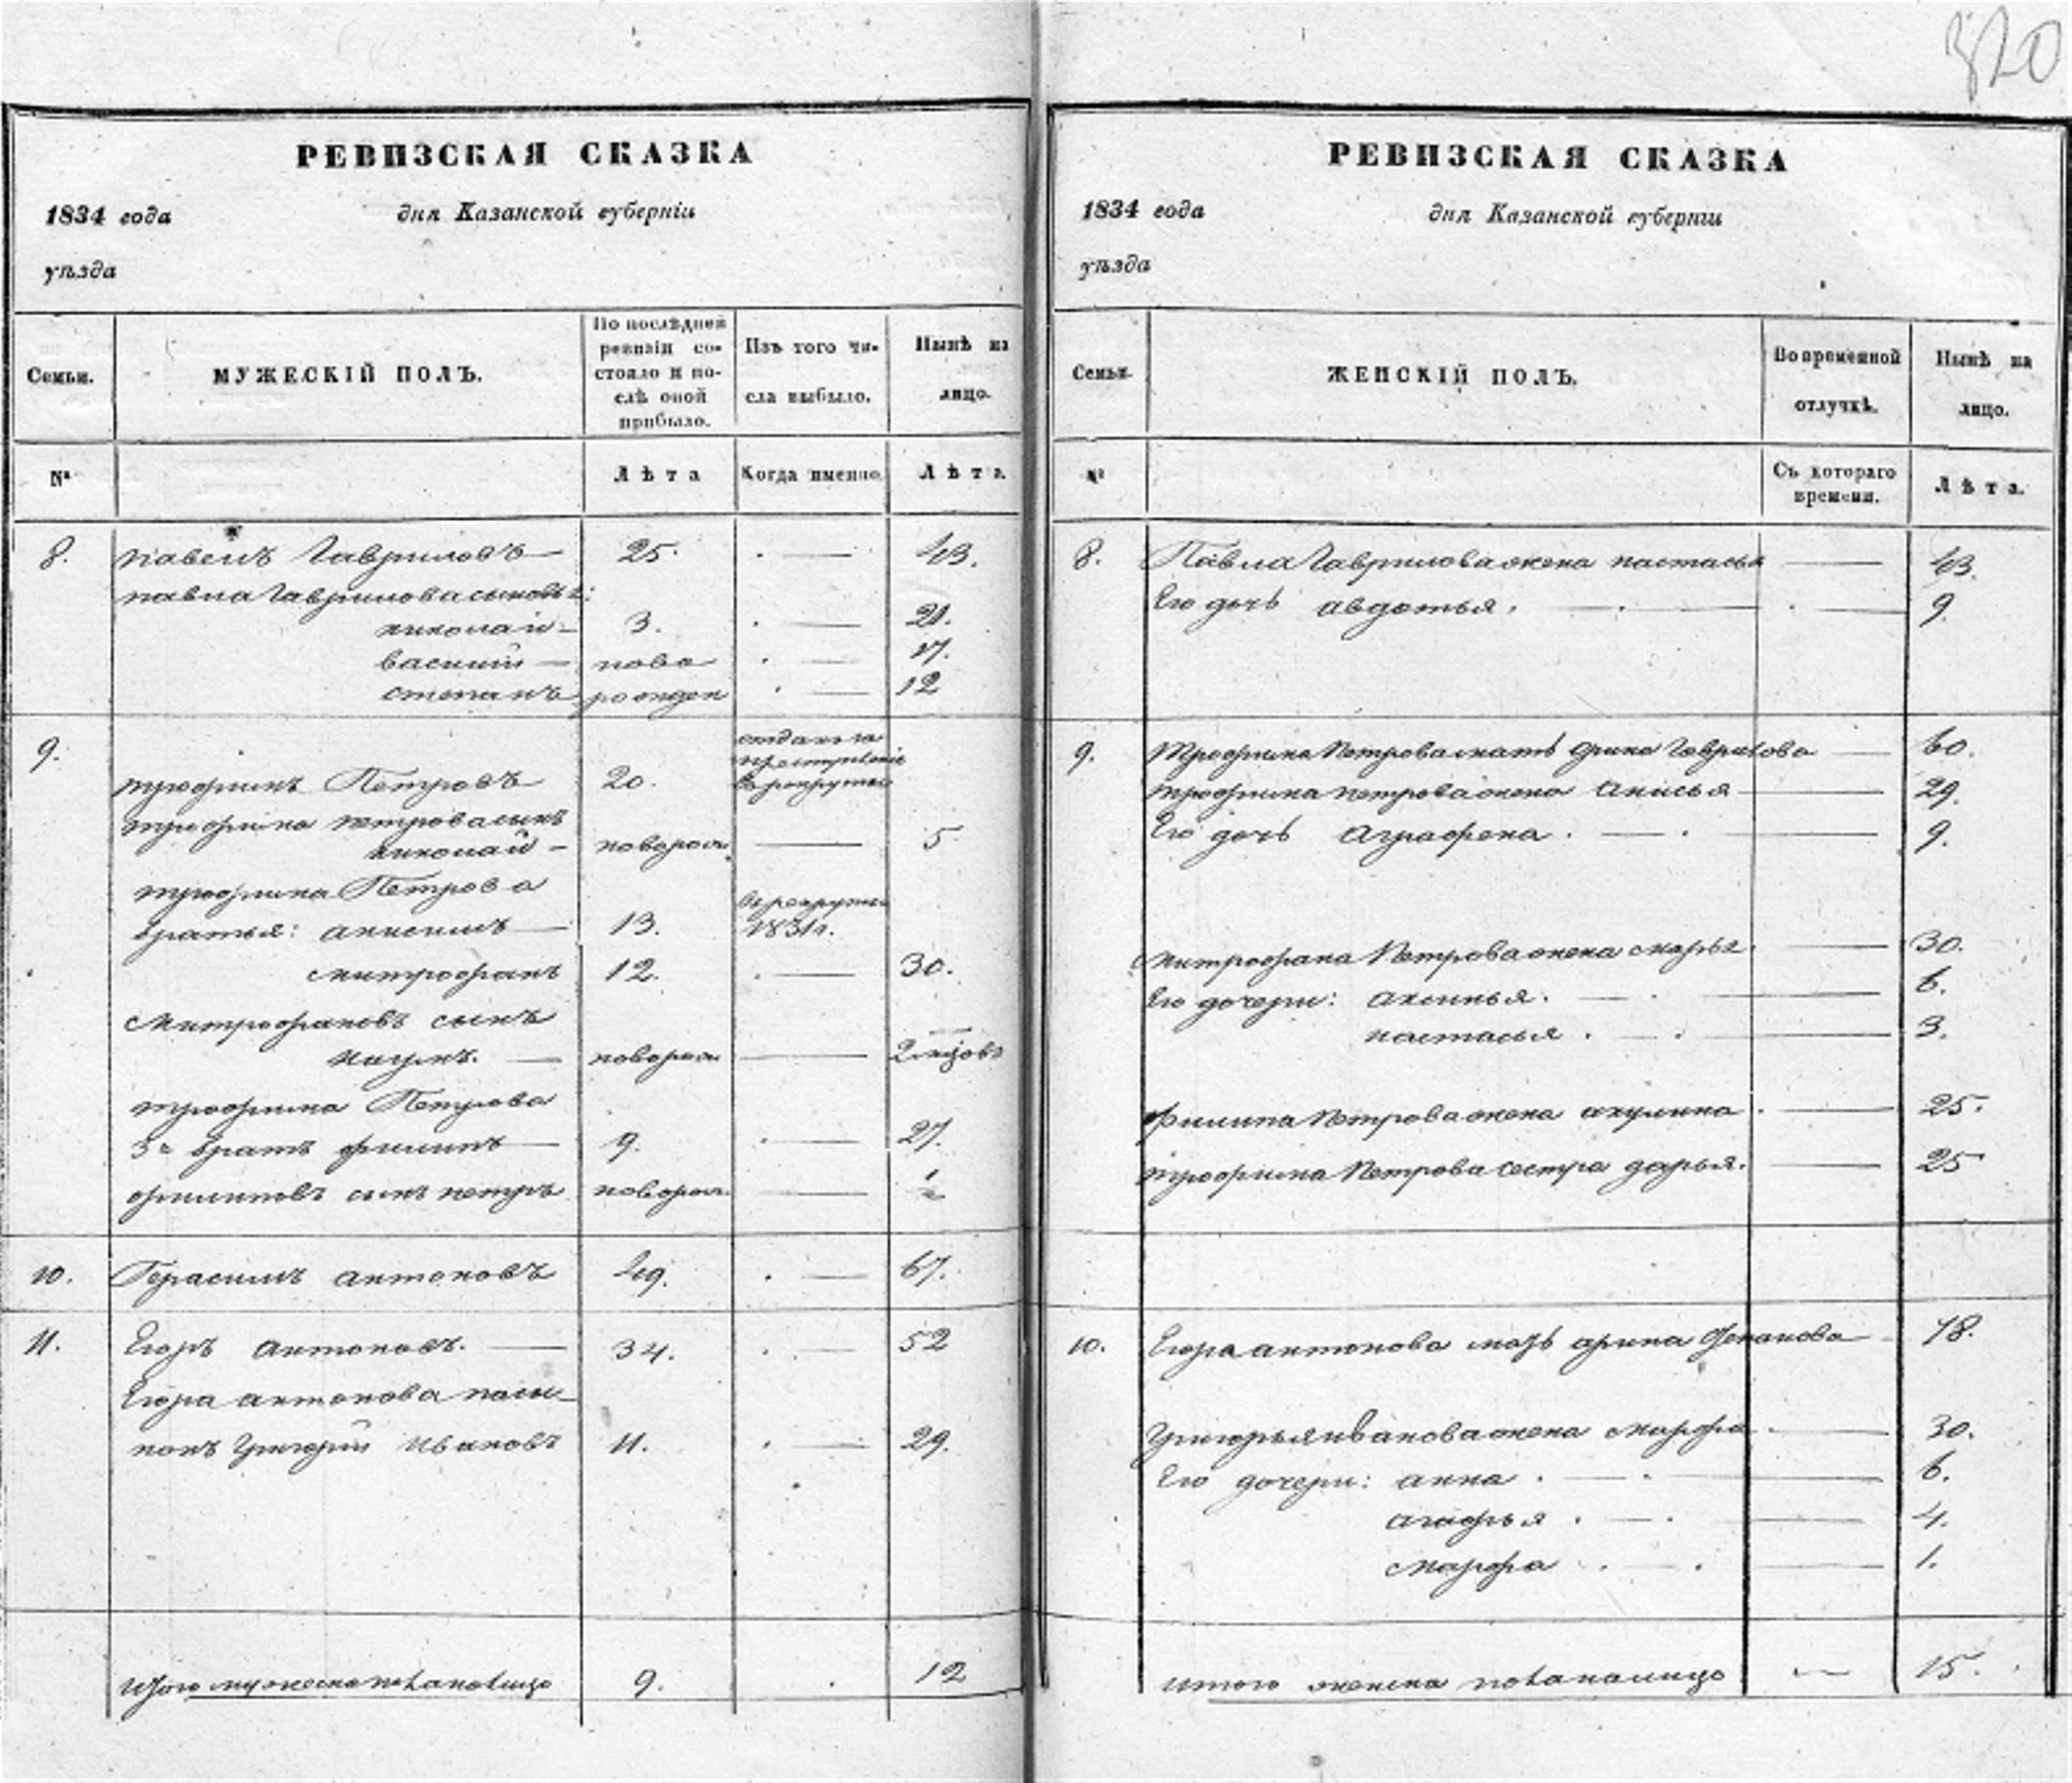 320
РЕВИЗСКАЯ СКАЗКА
1834 года дня Казанской губерніи
уѣзда
Семьи.
МУЖЕСКІЙ ПОЛЪ.
По послѣдней ревизіи состояло и послѣ оной прибыло.
Изъ того числа выбыло.
Нынѣ на лицо.
№
Лѣта
Когда именно.
Лѣта.
8. павелъ Гавриловъ — 25. — 43.
павла Гаврилова сыновья:
николай — 3. — 21.
василий — ново — 17.
степанъ рожден — 12
9.
отдан за
преступленіе
трофимъ Петровъ 20. в рекруты
трофима петрова сынъ
николай — новорож. — 5
трофима Петрова
в рекруты
братья: анисимъ — 13. 1831г.
митрофанъ 12. — 30.
Митрофановъ сынъ
наумъ. — новорож —
трофима Петрова
3й братъ филипъ — 9. — 27.
филиповъ сынъ петръ новорож. —
10. Герасимъ антоновъ 49. — 67.
11. Егоръ антоновъ. — 34. — 52
Егора антонова пасы-
нокъ Григорий Ивановъ 11. — 29.
Итого мужеска пола налицо 9. 12
РЕВИЗСКАЯ СКАЗКА
1834 года дня Казанской губерніи
уѣзда
Семьи.
ЖЕНСКІЙ ПОЛЪ.
Во временной отлучкѣ.
Нынѣ на лицо.
№
Съ котораго времени.
Лѣта.
8. Павла Гаврилова жена настасья — 43.
Его дочь авдотья. — 9
9. Трофима Петрова мать Гаврилова — 60.
трофима петрова жена Анисья — 29.
Его дочь Аграфена. — 9.
митрофана Петрова жена марья — 30.
Его дочери: аксинья. — 6.
настасья. — 3.
филипа Петрова жена акулина. — 25.
трофима Петрова сестра дарья. — 25
10. Егора антонова мать арина — 78.
Григорья иванова жена марфа. — 30.
Его дочери: анна. — 6.
— 4.
марфа. — 1.
итого женска пола налицо — 15.